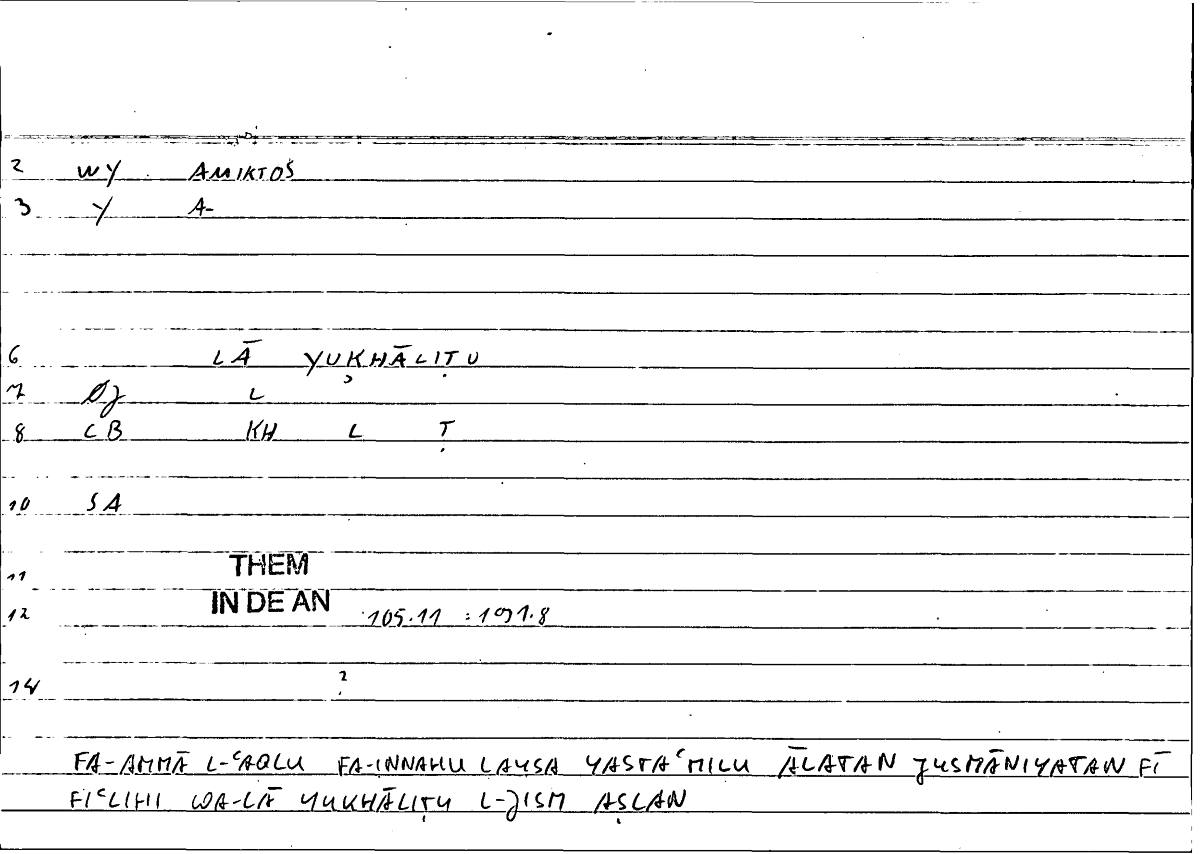 2 WY AMIKTOS
3 Y A-
6 LĀ YUKHĀLIṬU
7 L
8 LB KH L Ṭ
10 SA
11 THEM
12 IN DE AN 105.11 : 191.8
14 ?
FA-AMMĀ L-ʿAQLU FA-INNAHU LAYSA YASTAʿMILU ĀLATAN JUSMĀNIYATAN FĪ
FIʿLIHI WA-LĀ YUKHĀLIṬU L-JISM AṢLAN